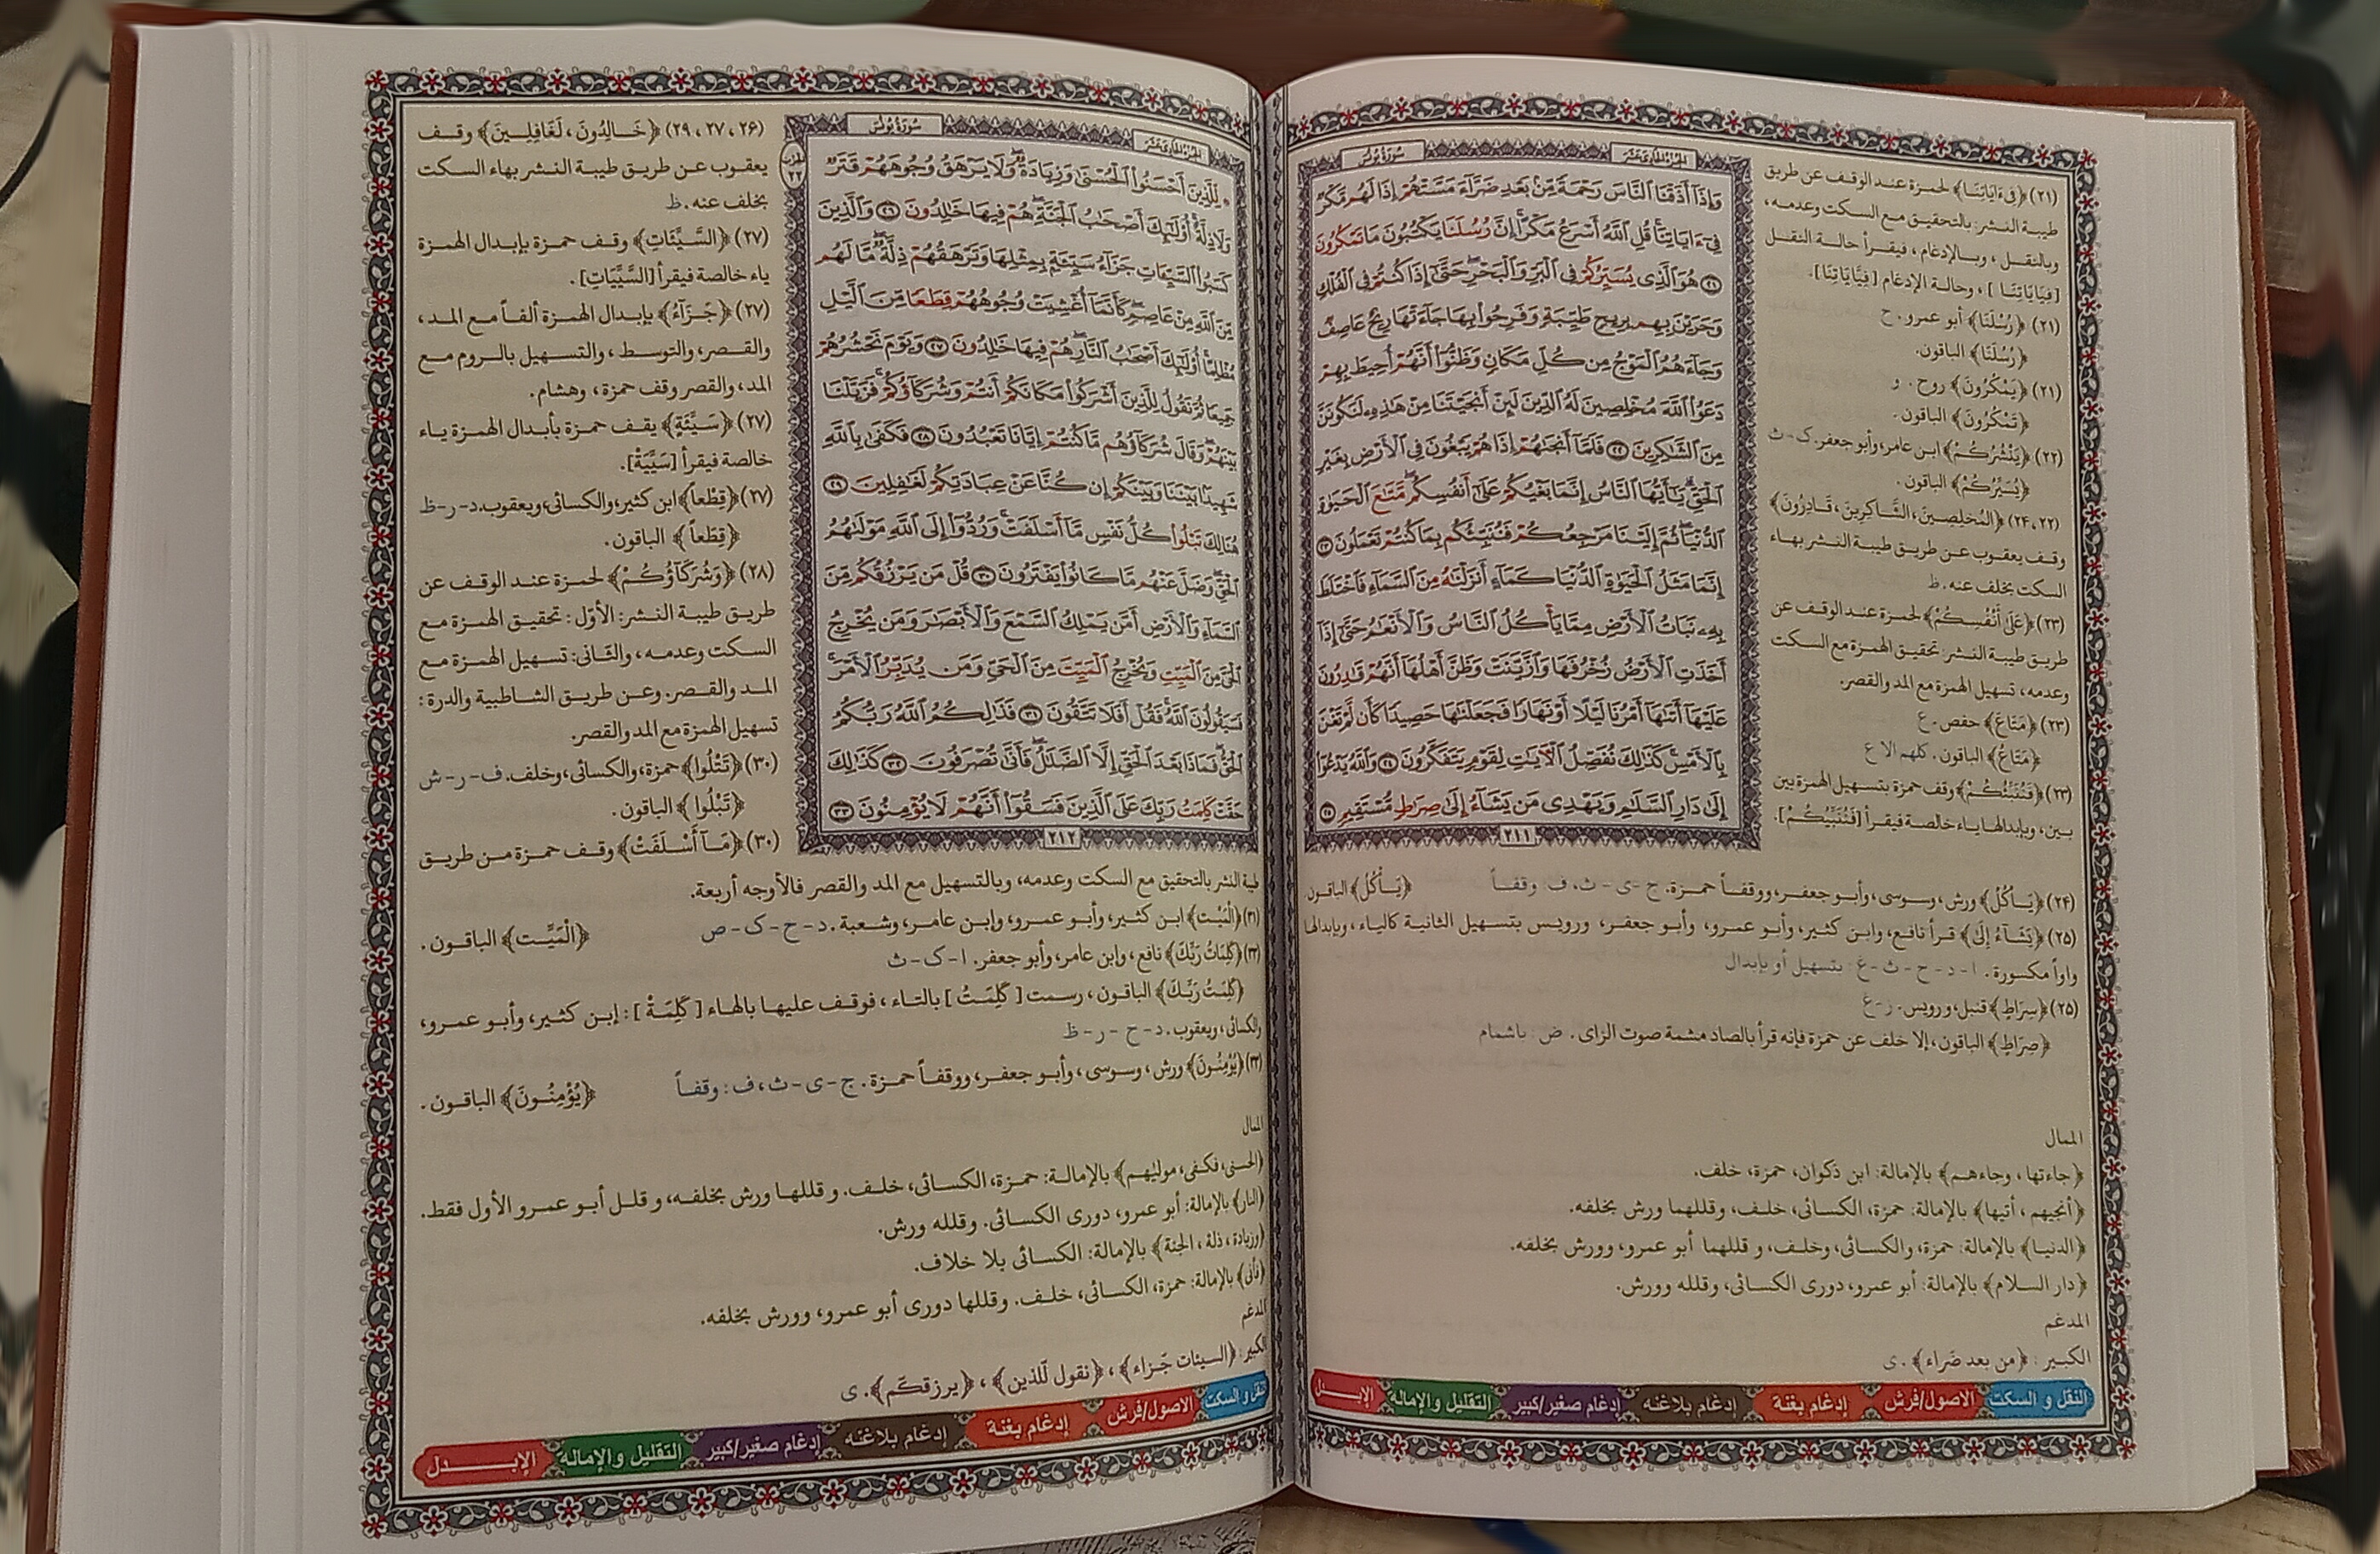 الجزء الحادي عشر
سورة يونس
وَإِذَآ أَذَقْنَا ٱلنَّاسَ رَحْمَةً مِّنۢ بَعْدِ ضَرَّآءَ مَسَّتْهُمْ إِذَا لَهُم مَّكْرٌ
فِىٓ ءَايَاتِنَا ۚ قُلِ ٱللَّهُ أَسْرَعُ مَكْرًا ۚ إِنَّ رُسُلَنَا يَكْتُبُونَ مَا تَمْكُرُونَ
٢١ هُوَ ٱلَّذِى يُسَيِّرُكُمْ فِى ٱلْبَرِّ وَٱلْبَحْرِ ۖ حَتَّىٰٓ إِذَا كُنتُمْ فِى ٱلْفُلْكِ
وَجَرَيْنَ بِهِم بِرِيحٍ طَيِّبَةٍ وَفَرِحُوا۟ بِهَا جَآءَتْهَا رِيحٌ عَاصِفٌ
وَجَآءَهُمُ ٱلْمَوْجُ مِن كُلِّ مَكَانٍ وَظَنُّوٓا۟ أَنَّهُمْ أُحِيطَ بِهِمْ ۙ
دَعَوُا۟ ٱللَّهَ مُخْلِصِينَ لَهُ ٱلدِّينَ لَئِنْ أَنجَيْتَنَا مِنْ هَٰذِهِۦ لَنَكُونَنَّ
مِنَ ٱلشَّٰكِرِينَ ٢٢ فَلَمَّآ أَنجَىٰهُمْ إِذَا هُمْ يَبْغُونَ فِى ٱلْأَرْضِ بِغَيْرِ
ٱلْحَقِّ ۗ يَٰٓأَيُّهَا ٱلنَّاسُ إِنَّمَا بَغْيُكُمْ عَلَىٰٓ أَنفُسِكُم ۖ مَّتَٰعَ ٱلْحَيَوٰةِ
ٱلدُّنْيَا ۖ ثُمَّ إِلَيْنَا مَرْجِعُكُمْ فَنُنَبِّئُكُم بِمَا كُنتُمْ تَعْمَلُونَ ٢٣
إِنَّمَا مَثَلُ ٱلْحَيَوٰةِ ٱلدُّنْيَا كَمَآءٍ أَنزَلْنَٰهُ مِنَ ٱلسَّمَآءِ فَٱخْتَلَطَ
بِهِۦ نَبَاتُ ٱلْأَرْضِ مِمَّا يَأْكُلُ ٱلنَّاسُ وَٱلْأَنْعَٰمُ حَتَّىٰٓ إِذَآ
أَخَذَتِ ٱلْأَرْضُ زُخْرُفَهَا وَٱزَّيَّنَتْ وَظَنَّ أَهْلُهَآ أَنَّهُمْ قَٰدِرُونَ
عَلَيْهَآ أَتَىٰهَآ أَمْرُنَا لَيْلًا أَوْ نَهَارًا فَجَعَلْنَٰهَا حَصِيدًا كَأَن لَّمْ تَغْنَ
بِٱلْأَمْسِ ۚ كَذَٰلِكَ نُفَصِّلُ ٱلْءَايَٰتِ لِقَوْمٍ يَتَفَكَّرُونَ ٢٤ وَٱللَّهُ يَدْعُوٓا۟
إِلَىٰ دَارِ ٱلسَّلَٰمِ وَيَهْدِى مَن يَشَآءُ إِلَىٰ صِرَٰطٍ مُّسْتَقِيمٍ ٢٥
٢١١
(٢١) ﴿فِى ءَايَاتِنَا﴾ لحمزة عند الوقف عن طريق
طيبة النشر: بالتحقيق مع السكت وعدمه،
وبالنقل، وبالإدغام، فيقرأ حالة النقل
[فِيَايَاتِنَا]، وحالة الإدغام [فِيَّايَاتِنَا].
(٢١) ﴿رُسْلَنَا﴾ أبو عمرو. ح
﴿رُسُلَنَا﴾ الباقون.
(٢١) ﴿يَمْكُرُونَ﴾ روح. و
﴿تَمْكُرُونَ﴾ الباقون.
(٢٢) ﴿يَنْشُرُكُمْ﴾ ابن عامر، وأبو جعفر. ك - ث
﴿يُسَيِّرُكُمْ﴾ الباقون.
(٢٢، ٢٤) ﴿المُخلِصِينَ، الشَّاكِرِينَ، قَادِرُونَ﴾
وقف يعقوب عن طريق طيبة النشر بهاء
السكت بخلف عنه. ظ
(٢٣) ﴿عَلَىٰ أَنْفُسِكُمْ﴾ لحمزة عند الوقف عن
طريق طيبة النشر: تحقيق الهمزة مع السكت
وعدمه، تسهيل الهمزة مع المد والقصر.
(٢٣) ﴿مَتَاعَ﴾ حفص. ع
﴿مَتَاعُ﴾ الباقون. كلهم الا ع
(٢٣) ﴿فَنُنَبِّئُكُمْ﴾ وقف حمزة بتسهيل الهمزة بين
بين، وبإبدالها ياء خالصة فيقرأ [فَنُنَبِّيُكُمْ].
(٢٤) ﴿يَاكُلُ﴾ ورش، وسوسى، وأبو جعفر، ووقفاً حمزة. ج - ى - ث، ف: وقفاً ﴿يَأْكُلُ﴾ الباقون
(٢٥) ﴿يَشَآءُ إِلَىٰ﴾ قرأ نافع، وابن كثير، وأبو عمرو، وأبو جعفر، ورويس بتسهيل الثانية كالياء، وبإبدالها
واواً مكسورة. ا - د - ح - ث - غ: بتسهيل أو بإبدال
(٢٥) ﴿سِرَاطٍ﴾ قنبل، ورويس. ز - غ
﴿صِرَاطٍ﴾ الباقون، إلا خلف عن حمزة فإنه قرأ بالصاد مشمة صوت الزاى. ض: باشمام
الممال
﴿جاءتها، وجاءهم﴾ بالإمالة: ابن ذكوان، حمزة، خلف.
﴿أنجيهم، أتيها﴾ بالإمالة: حمزة، الكسائى، خلف، وقللهما ورش بخلفه.
﴿الدنيا﴾ بالإمالة: حمزة، والكسائى، وخلف، و قللهما أبو عمرو، وورش بخلفه.
﴿دار السلام﴾ بالإمالة: أبو عمرو، دورى الكسائى، وقلله وورش.
المدغم
الكبير: ﴿من بعد ضَراء﴾. ى
النقل و السكت الاصول/فرش إدغام بغنة إدغام بلاغنه إدغام صغير/كبير التقليل والإماله الإبدل
الجزء الحادي عشر
سورة يونس
الحزب ٢٢
لِّلَّذِينَ أَحْسَنُوا۟ ٱلْحُسْنَىٰ وَزِيَادَةٌ ۖ وَلَا يَرْهَقُ وُجُوهَهُمْ قَتَرٌ
وَلَا ذِلَّةٌ ۚ أُو۟لَٰٓئِكَ أَصْحَٰبُ ٱلْجَنَّةِ ۖ هُمْ فِيهَا خَٰلِدُونَ ٢٦ وَٱلَّذِينَ
كَسَبُوا۟ ٱلسَّيِّـَٔاتِ جَزَآءُ سَيِّئَةٍۭ بِمِثْلِهَا وَتَرْهَقُهُمْ ذِلَّةٌ ۖ مَّا لَهُم
مِّنَ ٱللَّهِ مِنْ عَاصِمٍ ۖ كَأَنَّمَآ أُغْشِيَتْ وُجُوهُهُمْ قِطَعًا مِّنَ ٱلَّيْلِ
مُظْلِمًا ۚ أُو۟لَٰٓئِكَ أَصْحَٰبُ ٱلنَّارِ ۖ هُمْ فِيهَا خَٰلِدُونَ ٢٧ وَيَوْمَ نَحْشُرُهُمْ
جَمِيعًا ثُمَّ نَقُولُ لِلَّذِينَ أَشْرَكُوا۟ مَكَانَكُمْ أَنتُمْ وَشُرَكَآؤُكُمْ ۚ فَزَيَّلْنَا
بَيْنَهُمْ ۖ وَقَالَ شُرَكَآؤُهُم مَّا كُنتُمْ إِيَّانَا تَعْبُدُونَ ٢٨ فَكَفَىٰ بِٱللَّهِ
شَهِيدًۢا بَيْنَنَا وَبَيْنَكُمْ إِن كُنَّا عَنْ عِبَادَتِكُمْ لَغَٰفِلِينَ ٢٩
هُنَالِكَ تَبْلُوا۟ كُلُّ نَفْسٍ مَّآ أَسْلَفَتْ ۚ وَرُدُّوٓا۟ إِلَى ٱللَّهِ مَوْلَىٰهُمُ
ٱلْحَقِّ ۖ وَضَلَّ عَنْهُم مَّا كَانُوا۟ يَفْتَرُونَ ٣٠ قُلْ مَن يَرْزُقُكُم مِّنَ
ٱلسَّمَآءِ وَٱلْأَرْضِ أَمَّن يَمْلِكُ ٱلسَّمْعَ وَٱلْأَبْصَٰرَ وَمَن يُخْرِجُ
ٱلْحَىَّ مِنَ ٱلْمَيِّتِ وَيُخْرِجُ ٱلْمَيِّتَ مِنَ ٱلْحَىِّ وَمَن يُدَبِّرُ ٱلْأَمْرَ ۚ
فَسَيَقُولُونَ ٱللَّهُ ۚ فَقُلْ أَفَلَا تَتَّقُونَ ٣١ فَذَٰلِكُمُ ٱللَّهُ رَبُّكُمُ
ٱلْحَقُّ ۖ فَمَاذَا بَعْدَ ٱلْحَقِّ إِلَّا ٱلضَّلَٰلُ ۖ فَأَنَّىٰ تُصْرَفُونَ ٣٢ كَذَٰلِكَ
حَقَّتْ كَلِمَتُ رَبِّكَ عَلَى ٱلَّذِينَ فَسَقُوٓا۟ أَنَّهُمْ لَا يُؤْمِنُونَ ٣٣
٢١٢
(٢٦، ٢٧، ٢٩) ﴿خَالِدُونَ، لَغَافِلِينَ﴾ وقف
يعقوب عن طريق طيبة النشر بهاء السكت
بخلف عنه. ظ
(٢٧) ﴿السَّيِّئَاتِ﴾ وقف حمزة بإبدال الهمزة
ياء خالصة فيقرأ [السَّيِّيَاتِ].
(٢٧) ﴿جَزَآءُ﴾ بإبدال الهمزة ألفاً مع المد،
والقصر، والتوسط، والتسهيل بالروم مع
المد، والقصر وقف حمزة، وهشام.
(٢٧) ﴿سَيِّئَةٍ﴾ يقف حمزة بأبدال الهمزة ياء
خالصة فيقرأ [سَيِّيَةْ].
(٢٧) ﴿قِطْعاً﴾ ابن كثير، والكسائى، ويعقوب. د - ر - ظ
﴿قِطَعاً﴾ الباقون.
(٢٨) ﴿وَشُرَكَآؤُكُمْ﴾ لحمزة عند الوقف عن
طريق طيبة النشر: الأوّل: تحقيق الهمزة مع
السكت وعدمه، والثانى: تسهيل الهمزة مع
المد والقصر. وعن طريق الشاطبية والدرة:
تسهيل الهمزة مع المد والقصر.
(٣٠) ﴿تَتْلُوا﴾ حمزة، والكسائى، وخلف. ف - ر - ش
﴿تَبْلُوا﴾ الباقون.
(٣٠) ﴿مَآ أَسْلَفَتْ﴾ وقف حمزة من طريق
طيبة النشر بالتحقيق مع السكت وعدمه، وبالتسهيل مع المد والقصر فالأوجه أربعة.
(٣١) ﴿الْمَيْت﴾ ابن كثير، وأبو عمرو، وابن عامر، وشعبة. د - ح - ك - ص ﴿الْمَيِّت﴾ الباقون.
(٣٣) ﴿كَلِمَاتُ رَبِّكَ﴾ نافع، وابن عامر، وأبو جعفر. ا - ك - ث
﴿كَلِمَتُ رَبِّكَ﴾ الباقون، رسمت [كَلِمَتُ] بالتاء، فوقف عليها بالهاء [كَلِمَةْ]: إبن كثير، وأبو عمرو،
والكسائى، ويعقوب. د - ح - ر - ظ
(٣٣) ﴿يُوْمِنُونَ﴾ ورش، وسوسى، وأبو جعفر، ووقفاً حمزة. ج - ى - ث، ف: وقفاً ﴿يُؤْمِنُونَ﴾ الباقون.
الممال
﴿الحسنى، فكفى، موليهم﴾ بالإمالة: حمزة، الكسائى، خلف. و قللها ورش بخلفه، و قلل أبو عمرو الأول فقط.
﴿النار﴾ بالإمالة: أبو عمرو، دورى الكسائى. وقلله ورش.
﴿وزيادة، ذلة، الجنة﴾ بالإمالة: الكسائى بلا خلاف.
﴿فأنى﴾ بالإمالة: حمزة، الكسائى، خلف. وقللها دورى أبو عمرو، وورش بخلفه.
المدغم
الكبير: ﴿السيئات جَزاء﴾، ﴿نقول لّلذين﴾، ﴿يرزقكّم﴾. ى
النقل و السكت الاصول/فرش إدغام بغنة إدغام بلاغنه إدغام صغير/كبير التقليل والإماله الإبدل